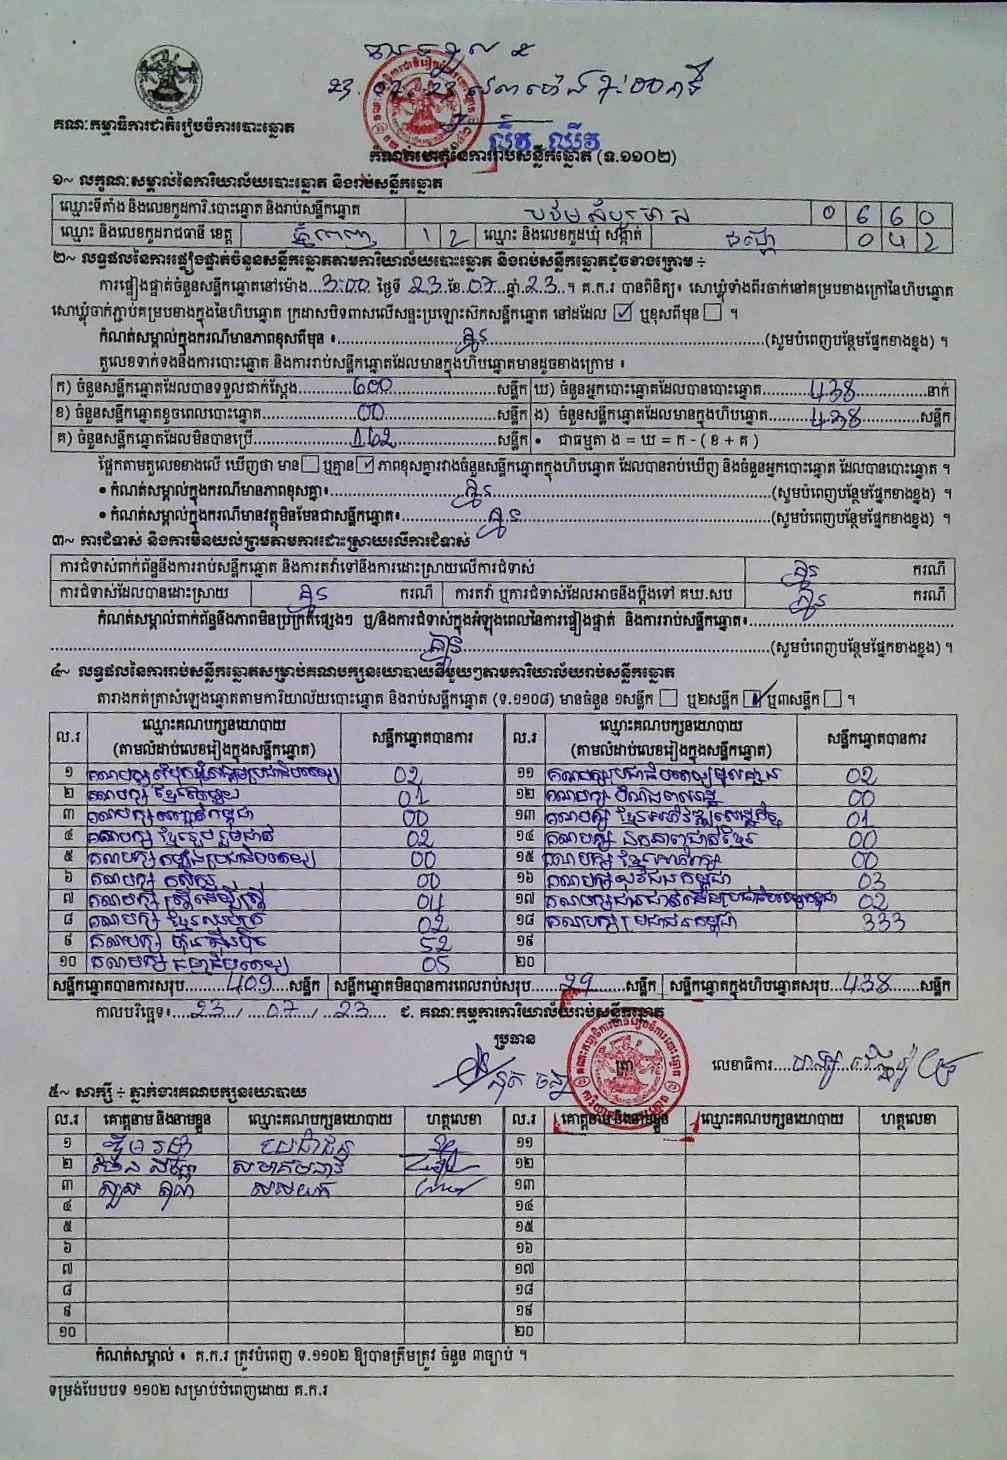 គណៈកម្មាធិការជាតិរៀបចំការបោះឆ្នោត
កំណត់ហេតុនៃការរាប់សន្លឹកឆ្នោត (ទ.១១០២)
១~ លក្ខណៈសម្គាល់នៃការិយាល័យបោះឆ្នោត និងរាប់សន្លឹកឆ្នោត
ឈ្មោះទីតាំង និងលេខកូដការិ.បោះឆ្នោត និងរាប់សន្លឹកឆ្នោត 0 6 6 0
ឈ្មោះ និងលេខកូដរាជធានី ខេត្ត ភ្នំពេញ 1 2 ឈ្មោះ និងលេខកូដឃុំ សង្កាត់ 0 4 2
២~ លទ្ធផលនៃការផ្ទៀងផ្ទាត់ចំនួនសន្លឹកឆ្នោតតាមការិយាល័យបោះឆ្នោត និងរាប់សន្លឹកឆ្នោតដូចខាងក្រោម ÷
ការផ្ទៀងផ្ទាត់ចំនួនសន្លឹកឆ្នោតនៅម៉ោង...3:00. ថ្ងៃទី 23.ខែ.07..ឆ្នាំ.23..។ គ.ក.រ បានពិនិត្យ៖ សោឃ្លុំទាំងពីរចាក់នៅគម្របខាងក្រៅនៃហិបឆ្នោត
សោឃ្លុំចាក់ភ្ជាប់គម្របខាងក្នុងនៃហិបឆ្នោត ក្រដាសបិទពាសលើសន្ទះប្រឡោះស៊កសន្លឹកឆ្នោត នៅដដែល ☑ ឬខុសពីមុន ☐ ។
កំណត់សម្គាល់ក្នុងករណីមានភាពខុសពីមុន ៖ គ្មាន (សូមបំពេញបន្ថែមផ្នែកខាងខ្នង) ។
តួលេខទាក់ទងនឹងការបោះឆ្នោត និងការរាប់សន្លឹកឆ្នោតដែលមានក្នុងហិបឆ្នោតមានដូចខាងក្រោម ៖
ក) ចំនួនសន្លឹកឆ្នោតដែលបានទទួលជាក់ស្តែង 600 សន្លឹក ឃ) ចំនួនអ្នកបោះឆ្នោតដែលបានបោះឆ្នោត 438 នាក់
ខ) ចំនួនសន្លឹកឆ្នោតខូចពេលបោះឆ្នោត 00 សន្លឹក ង) ចំនួនសន្លឹកឆ្នោតដែលមានក្នុងហិបឆ្នោត 438 សន្លឹក
គ) ចំនួនសន្លឹកឆ្នោតដែលមិនបានប្រើ 162 សន្លឹក • ជាធម្មតា ង = ឃ = ក - ( ខ + គ )
ផ្អែកតាមតួលេខខាងលើ ឃើញថា មាន ☐ ឬគ្មាន ☑ ភាពខុសគ្នារវាងចំនួនសន្លឹកឆ្នោតក្នុងហិបឆ្នោត ដែលបានរាប់ឃើញ និងចំនួនអ្នកបោះឆ្នោត ដែលបានបោះឆ្នោត ។
• កំណត់សម្គាល់ក្នុងករណីមានភាពខុសគ្នា៖ គ្មាន (សូមបំពេញបន្ថែមផ្នែកខាងខ្នង) ។
• កំណត់សម្គាល់ក្នុងករណីមានវត្ថុមិនមែនជាសន្លឹកឆ្នោត៖ គ្មាន (សូមបំពេញបន្ថែមផ្នែកខាងខ្នង) ។
៣~ ការជំទាស់ និងការមិនយល់ព្រមតាមការដោះស្រាយលើការជំទាស់
ការជំទាស់ពាក់ព័ន្ធនឹងការរាប់សន្លឹកឆ្នោត និងការតវ៉ាទៅនឹងការដោះស្រាយលើការជំទាស់ គ្មាន ករណី
ការជំទាស់ដែលបានដោះស្រាយ គ្មាន ករណី ការតវ៉ា ឬការជំទាស់ដែលអាចនឹងប្តឹងទៅ គឃ.សប គ្មាន ករណី
កំណត់សម្គាល់ពាក់ព័ន្ធនឹងភាពមិនប្រក្រតីផ្សេងៗ ឬ/និងការជំទាស់ក្នុងអំឡុងពេលនៃការផ្ទៀងផ្ទាត់ និងការរាប់សន្លឹកឆ្នោត៖
គ្មាន (សូមបំពេញបន្ថែមផ្នែកខាងខ្នង) ។
៤~ លទ្ធផលនៃការរាប់សន្លឹកឆ្នោតសម្រាប់គណបក្សនយោបាយនីមួយៗតាមការិយាល័យរាប់សន្លឹកឆ្នោត
តារាងកត់ត្រាសំឡេងឆ្នោតតាមការិយាល័យបោះឆ្នោត និងរាប់សន្លឹកឆ្នោត (ទ.១១០៨) មានចំនួន ១សន្លឹក ☐ ឬ២សន្លឹក ☑ ឬ៣សន្លឹក ☐ ។
ល.រ ឈ្មោះគណបក្សនយោបាយ (តាមលំដាប់លេខរៀងក្នុងសន្លឹកឆ្នោត) សន្លឹកឆ្នោតបានការ ល.រ ឈ្មោះគណបក្សនយោបាយ (តាមលំដាប់លេខរៀងក្នុងសន្លឹកឆ្នោត) សន្លឹកឆ្នោតបានការ
១ 02 ១១ 02
២ គណបក្ស 01 ១២ គណបក្ស 00
៣ គណបក្ស 00 ១៣ គណបក្ស 01
៤ គណបក្សខ្មែររួបរួមជាតិ 02 ១៤ គណបក្ស ឯកភាពជាតិខ្មែរ 00
៥ គណបក្ស 00 ១៥ គណបក្ស ខ្មែរ 00
៦ គណបក្ស កសិករ 00 ១៦ គណបក្ស 03
៧ គណបក្ស ស្ត្រីដើម្បីស្ត្រី 04 ១៧ 02
៨ គណបក្ស ខ្មែរ 02 ១៨ គណបក្ស ប្រជាជនកម្ពុជា 333
៩ គណបក្ស ហ៊្វុនស៊ិនប៉ិច 52 ១៩
១០ គណបក្ស 05 ២០
សន្លឹកឆ្នោតបានការសរុប 409 សន្លឹក សន្លឹកឆ្នោតមិនបានការពេលរាប់សរុប 29 សន្លឹក សន្លឹកឆ្នោតក្នុងហិបឆ្នោតសរុប 438 សន្លឹក
កាលបរិច្ឆេទ៖ 23 / 07 / 23 ជ. គណៈកម្មការការិយាល័យរាប់សន្លឹកឆ្នោត
ប្រធាន
ត្រា លេខាធិការ
៥~ សាក្សី ÷ ភ្នាក់ងារគណបក្សនយោបាយ
ល.រ គោត្តនាម និងនាមខ្លួន ឈ្មោះគណបក្សនយោបាយ ហត្ថលេខា ល.រ គោត្តនាម និងនាមខ្លួន ឈ្មោះគណបក្សនយោបាយ ហត្ថលេខា
១ ១១
២ ១២
៣ ១៣
៤ ១៤
៥ ១៥
៦ ១៦
៧ ១៧
៨ ១៨
៩ ១៩
១០ ២០
កំណត់សម្គាល់ ៖ គ.ក.រ ត្រូវបំពេញ ទ.១១០២ ឱ្យបានត្រឹមត្រូវ ចំនួន ៣ច្បាប់ ។
ទម្រង់បែបបទ ១១០២ សម្រាប់បំពេញដោយ គ.ក.រ